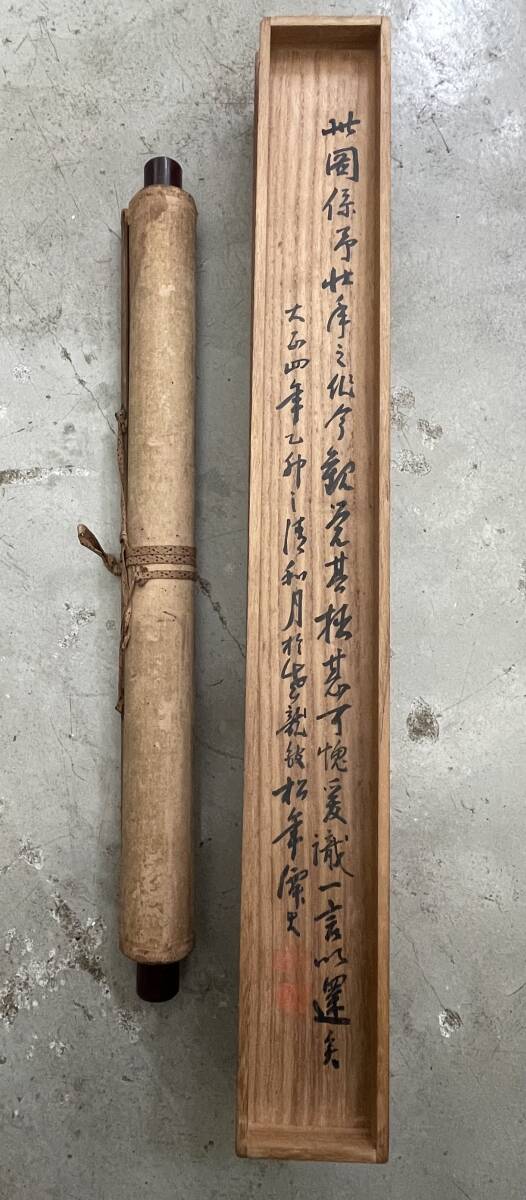 此図係予壮年之作今観覚其拙甚可愧爰識一言以還矣
大正四年乙卯之清和月於 龍館松年僊史